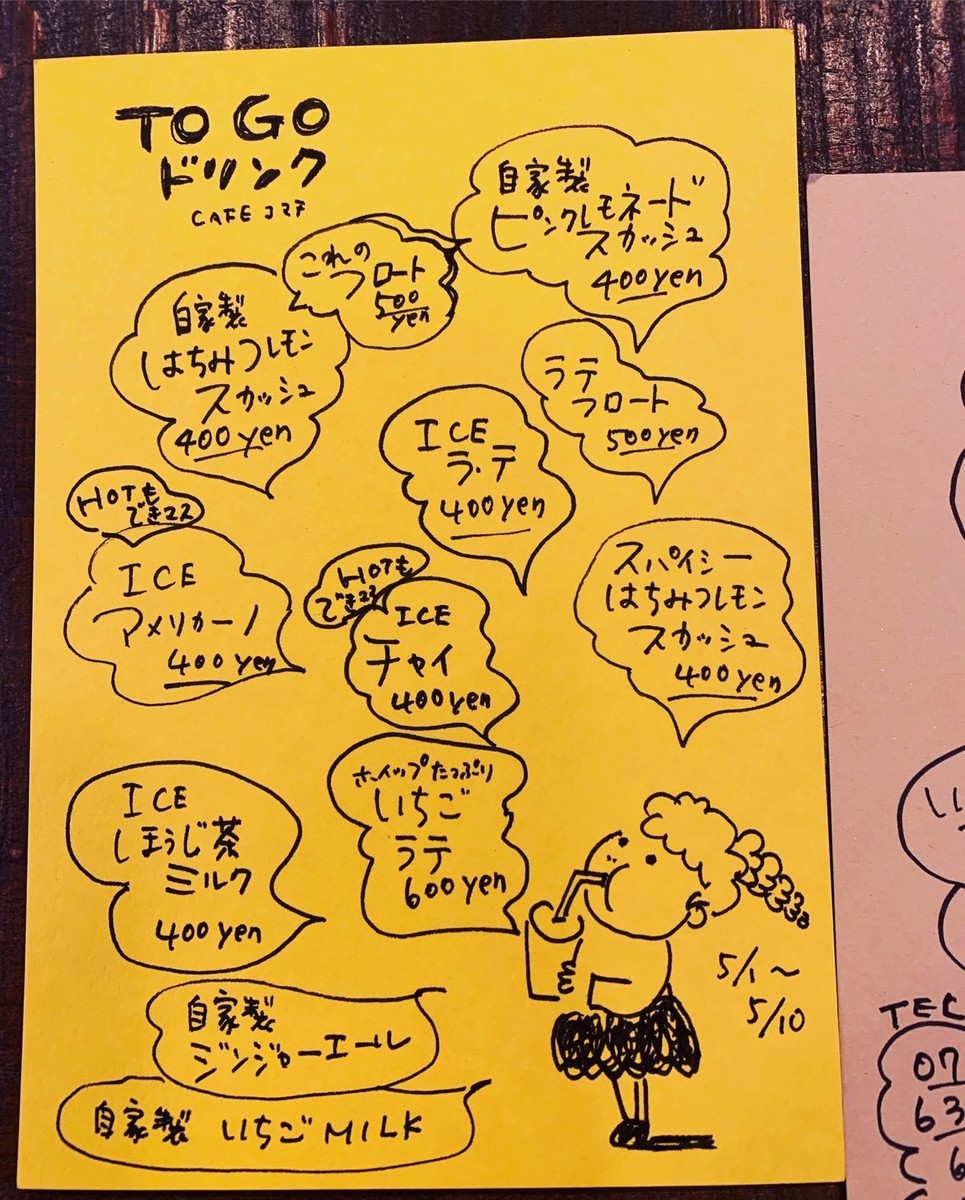 TO GO
ドリンク
CAFE コマチ
自家製
ピンクレモネード
スカッシュ
400yen
これの
フロート
500
yen
自家製
はちみつレモン
スカッシュ
400yen
ラテ
フロート
500yen
ICE
ラ・テ
400yen
HOTも
できます
ICE
アメリカーノ
400yen
HOTも
できます
ICE
チャイ
400yen
スパイシー
はちみつレモン
スカッシュ
400yen
ホイップたっぷり
いちご
ラテ
600yen
ICE
ほうじ茶
ミルク
400yen
5/1〜
5/10
自家製
ジンジャーエール
自家製 いちごMILK
い
TEL
07
63
6